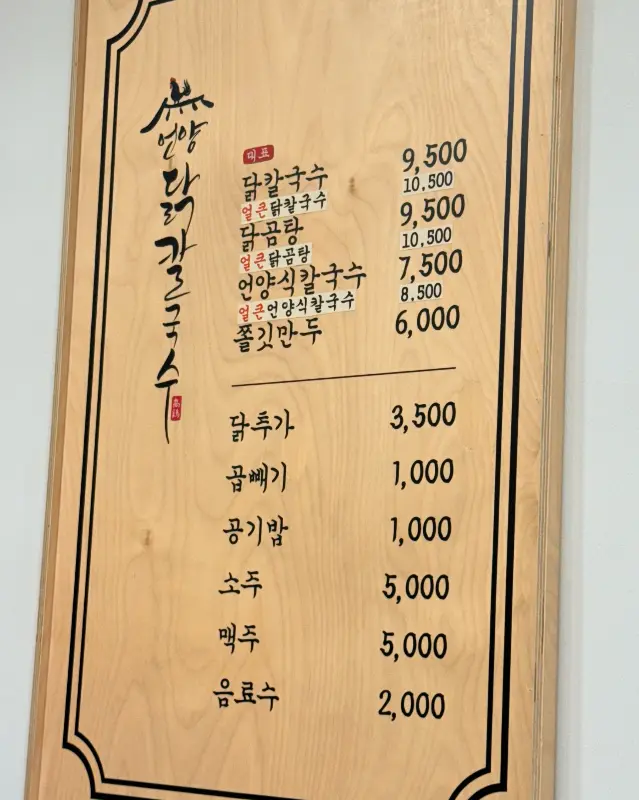 언양
닭칼국수
대표
닭칼국수 9,500
얼큰닭칼국수 10,500
닭곰탕 9,500
얼큰닭곰탕 10,500
언양식칼국수 7,500
얼큰언양식칼국수 8,500
쫄깃만두 6,000
닭추가 3,500
곱빼기 1,000
공기밥 1,000
소주 5,000
맥주 5,000
음료수 2,000